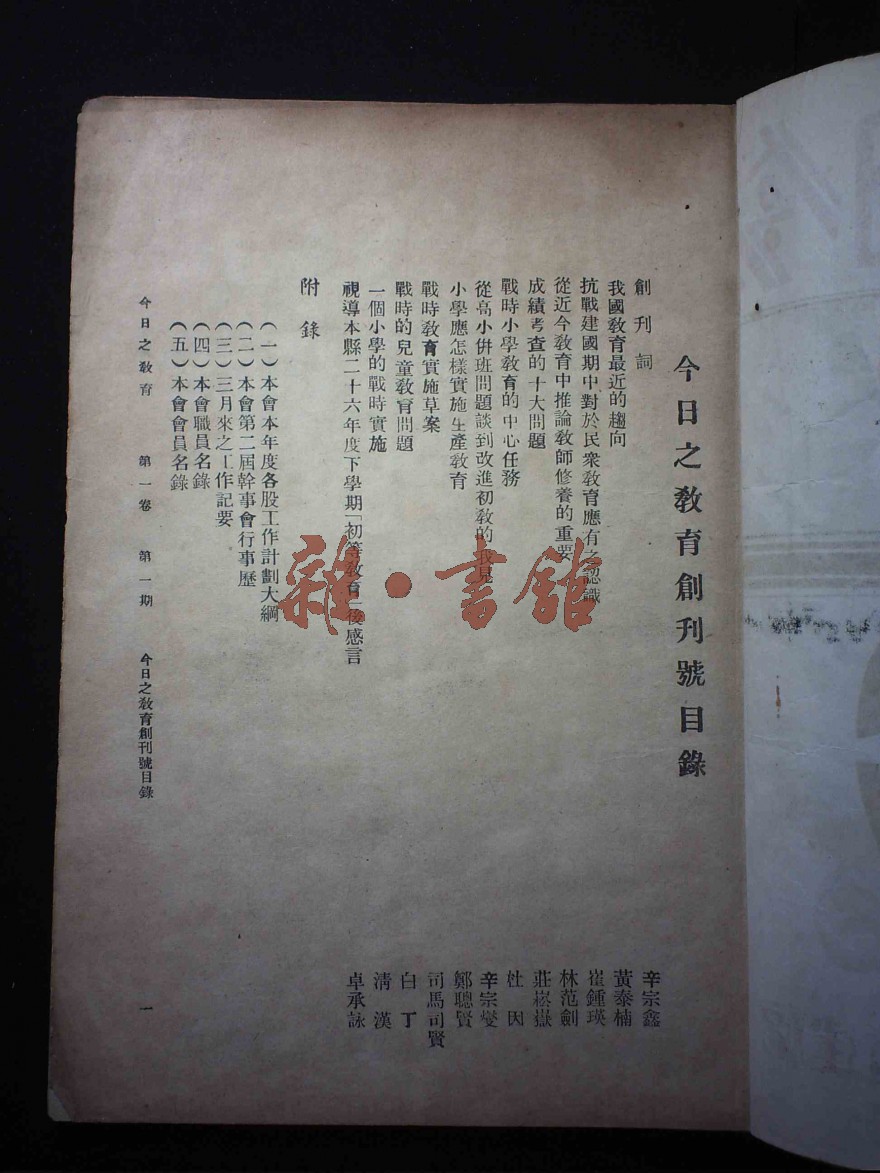 今日之教育創刊號目錄
創刊詞 辛宗鑫
我國教育最近的趨向 黃泰楠
抗戰建國期中對於民衆教育應有之認識 崔鍾瑛
從近今教育中推論教師修養的重要 林范劍
成績考查的十大問題 莊崧嶽
戰時小學教育的中心任務 杜因
從高小併班問題談到改進初教的我見 辛宗燮
小學應怎樣實施生產教育 鄭聰賢
戰時教育實施草案 司馬司賢
戰時的兒童教育問題 白丁
一個小學的戰時實施 清漢
視導本縣二十六年度下學期「初等教育」後感言 卓承詠
附錄
(一)本會本年度各股工作計劃大綱
(二)本會第二屆幹事會行事歷
(三)三月來之工作記要
(四)本會職員名錄
(五)本會會員名錄
今日之教育 第一卷 第一期 今日之教育創刊號目錄 一
雜·書館